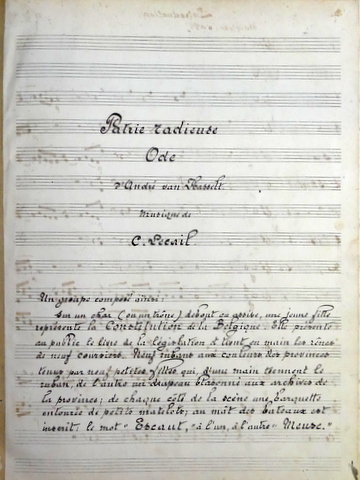 Patrie radieuse
Ode
d'André van Hasselt
Musique de
C. Lecail
Un groupe composé ainsi :
Sur un char (ou un trône) debout ou assise, une jeune fille
représente la Constitution de la Belgique. Elle présente
au public le livre de la législation et tient en main les rênes
de neuf coursiers. Neuf rubans aux couleurs des provinces
tenus par neuf petites filles qui, d'une main tiennent le
ruban, de l'autre un drapeau blasonné aux archives de
la province; de chaque côté de la scène une barquette
entourée de petits matelots; au mât des bateaux est
inscrit: le mot "Escaut," à l'un, à l'autre "Meuse."